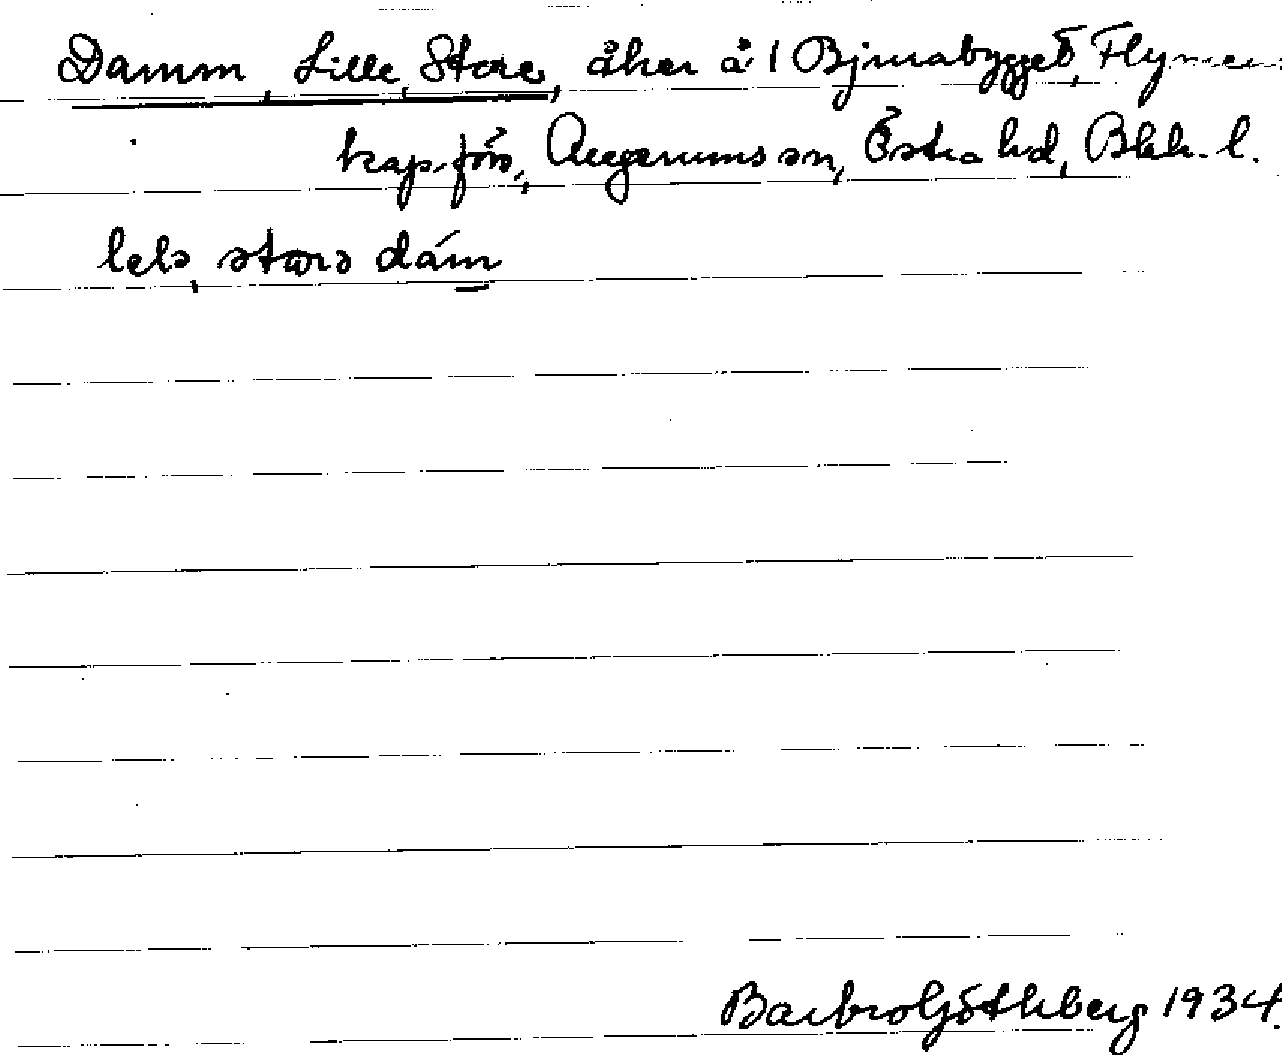 Damm, Lille, Store, åker å 1 Bjurabygget, Flymen
kap.förs., Augerums sn, Östra hd, Blek. l.
lelə, storə dám
Barbro Göthberg 1934.